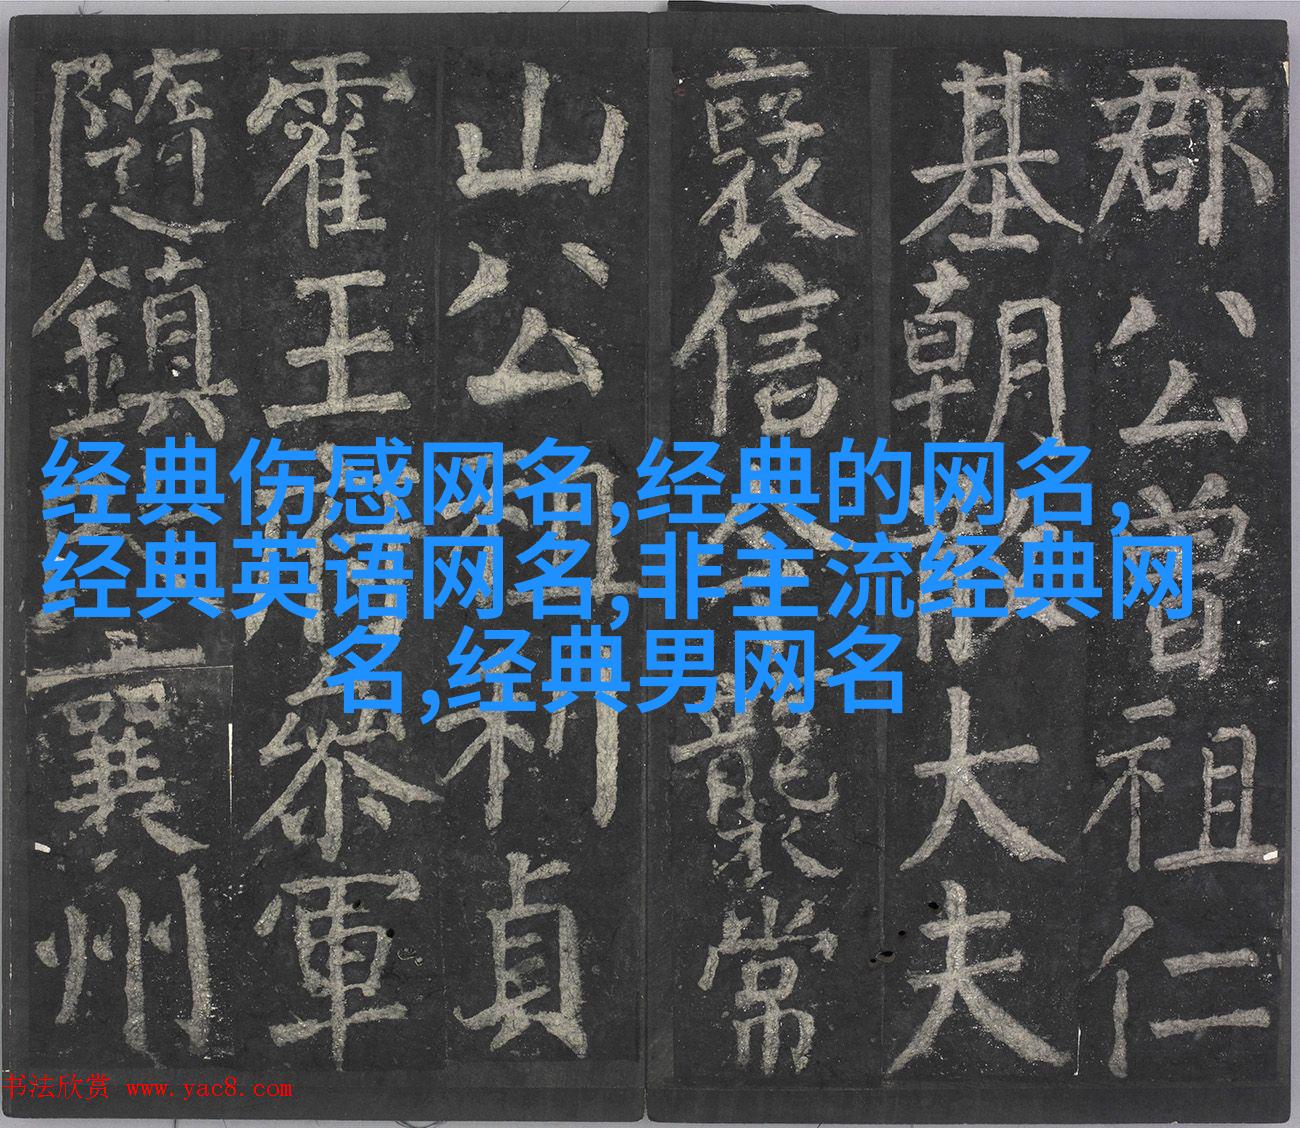 郡公曾祖仁
基朝散大夫
襃信令襲常
山公祖利貞
霍王府參軍
隨鎮襄州
经典伤感网名,经典的网名,
经典英语网名,非主流经典网
名,经典男网名
书法欣赏 www.yac8.com